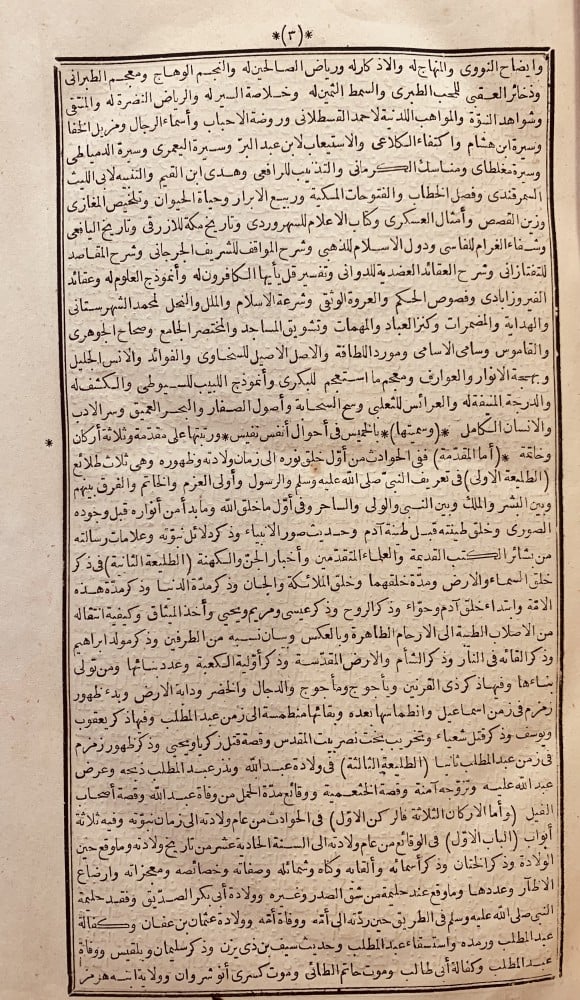 *(٣)*
وايضاح النووى والمنهاج له والاذكار له ورياض الصالحين له والنجم الوهاج ومعجم الطبرانى
وذخائر العقبى للمحب الطبرى والسمط الثمين له وخلاصة السير له والرياض النضرة له والمنتقى
وشواهد النبوّة والمواهب اللدنية لاحمد القسطلانى وروضة الاحباب وأسماء الرجال ومزيل الخفا
وسيرة ابن هشام واكتفاء الكلاعى والاستيعاب لابن عبد البرّ وسيرة اليعمرى وسيرة الدمياطى
وسيرة مغلطاى ومناسك الكرمانى والتذنيب للرافعى وهدى ابن القيم والتنبيه لابى الليث
السمرقندى وفصل الخطاب والفتوحات المكية وربيع الابرار وحياة الحيوان وتلخيص المغازى
وزين القصص وأمثال العسكرى وكتاب الاعلام للسهروردى وتاريخ مكة للازرقى وتاريخ اليافعى
وشفاء الغرام للفاسى ودول الاسلام للذهبى وشرح المواقف للشريف الجرجانى وشرح المقاصد
للتفتازانى وشرح العقائد العضدية للدوانى وتفسير قل يأيها الكافرون له وأنموذج العلوم له وعقائد
الفيروزابادى وفصوص الحكم والعروة الوثقى وشرعة الاسلام والملل والنحل لمحمد الشهرستانى
والهداية والمضمرات وكنز العباد والمهمات وتشويق المساجد والمختصر الجامع وصحاح الجوهرى
والقاموس وسامى الاسامى ومورد اللطافة والاصل الاصيل للسخاوى والفوائد والانس الجليل
وبهجة الانوار والعوارف ومعجم ما استعجم للبكرى وأنموذج اللبيب للسيوطى والكشف له
والدرجة المنيفة له والعرائس للثعلبى وسبح السحابة وأصول الصفار والبحر العميق وسر الادب
والانسان الكامل *(وسميتها)* بالخميس فى أحوال أنفس نفيس * ورتبتها على مقدّمة وثلاثة أركان
وخاتمة * (أما المقدّمة) ففى الحوادث من أوّل خلق نوره الى زمان ولادته وظهوره وهى ثلاث طلائع
(الطليعة الاولى) فى تعريف النبىّ صلى الله عليه وسلم والرسول وأولى العزم والخاتم والفرق بينهم
وبين البشر والملك وبين النبى والولى والساحر وفى أوّل ما خلق الله وما بدأ من أنواره قبل وجوده
الصورى وخلق طينته قبل طينة آدم وحديث صور الانبياء وذكر دلائل نبوّته وعلامات رسالته
من بشائر الكتب القديمة والعلماء المتقدّمين وأخبار الجنّ والكهنة (الطليعة الثانية) فى ذكر
خلق السماء والارض ومدّة خلقهما وخلق الملائكة والجان وذكر مدّة الدنيا وذكر مدّة هذه
الامّة وابتداء خلق آدم وحوّاء وذكر الروح وذكر عيسى ومريم ويحيى وأخذ الميثاق وكيفية انتقاله
من الاصلاب الطيبة الى الارحام الطاهرة وبالعكس وبيان نسبه من الطرفين وذكر مولد ابراهيم
وذكر القائه فى النار وذكر الشأم والارض المقدّسة وذكر أوّلية الكعبة وعدد بنائها ومن تولى
بناءها وفيها ذكر ذى القرنين ويأجوج ومأجوج والدجال والخضر ودابة الارض وبدء ظهور
زمزم فى زمن اسماعيل وانطماسها بعده وبقائها منطمسة الى زمن عبد المطلب وفيها ذكر يعقوب
ويوسف وذكر قتل شعياء وتخريب بخت نصر بيت المقدس وقصة قتل زكريا ويحيى وذكر ظهور زمزم
فى زمن عبد المطلب ثانيا (الطليعة الثالثة) فى ولادة عبد الله ونذر عبد المطلب ذبحه وعرض
عبد الله عليه وتزوّجه آمنة وقصة الخثعمية ووقائع مدّة الحمل من وفاة عبد الله وقصة أصحاب
الفيل (وأما الاركان الثلاثة فالركن الاوّل) فى الحوادث من عام ولادته الى زمان نبوّته وفيه ثلاثة
أبواب (الباب الاوّل) فى الوقائع من عام ولادته الى السنة الحادية عشر من تاريخ ولادته وما وقع حين
الولادة وذكر الختان وذكر أسمائه وألقابه وكناه وشمائله وصفاته وخصائصه ومعجزاته وارضاع
الاظآر وعددها وما وقع عند حليمة من شق الصدر وغيره وولادة أبى بكر الصدّيق وفقيد حليمة
النبى صلى الله عليه وسلم فى الطريق حين ردّته الى أمّه ووفاة أمّه وولادة عثمان بن عفان وكفالة
عبد المطلب ورمده واستسقاء عبد المطلب وحديث سيف بن ذى يزن وذكر سليمان وبلقيس ووفاة
عبد المطلب وكفالة أبى طالب وموت حاتم الطائى وموت كسرى أنوشروان وولاية ابنه هرمز
*